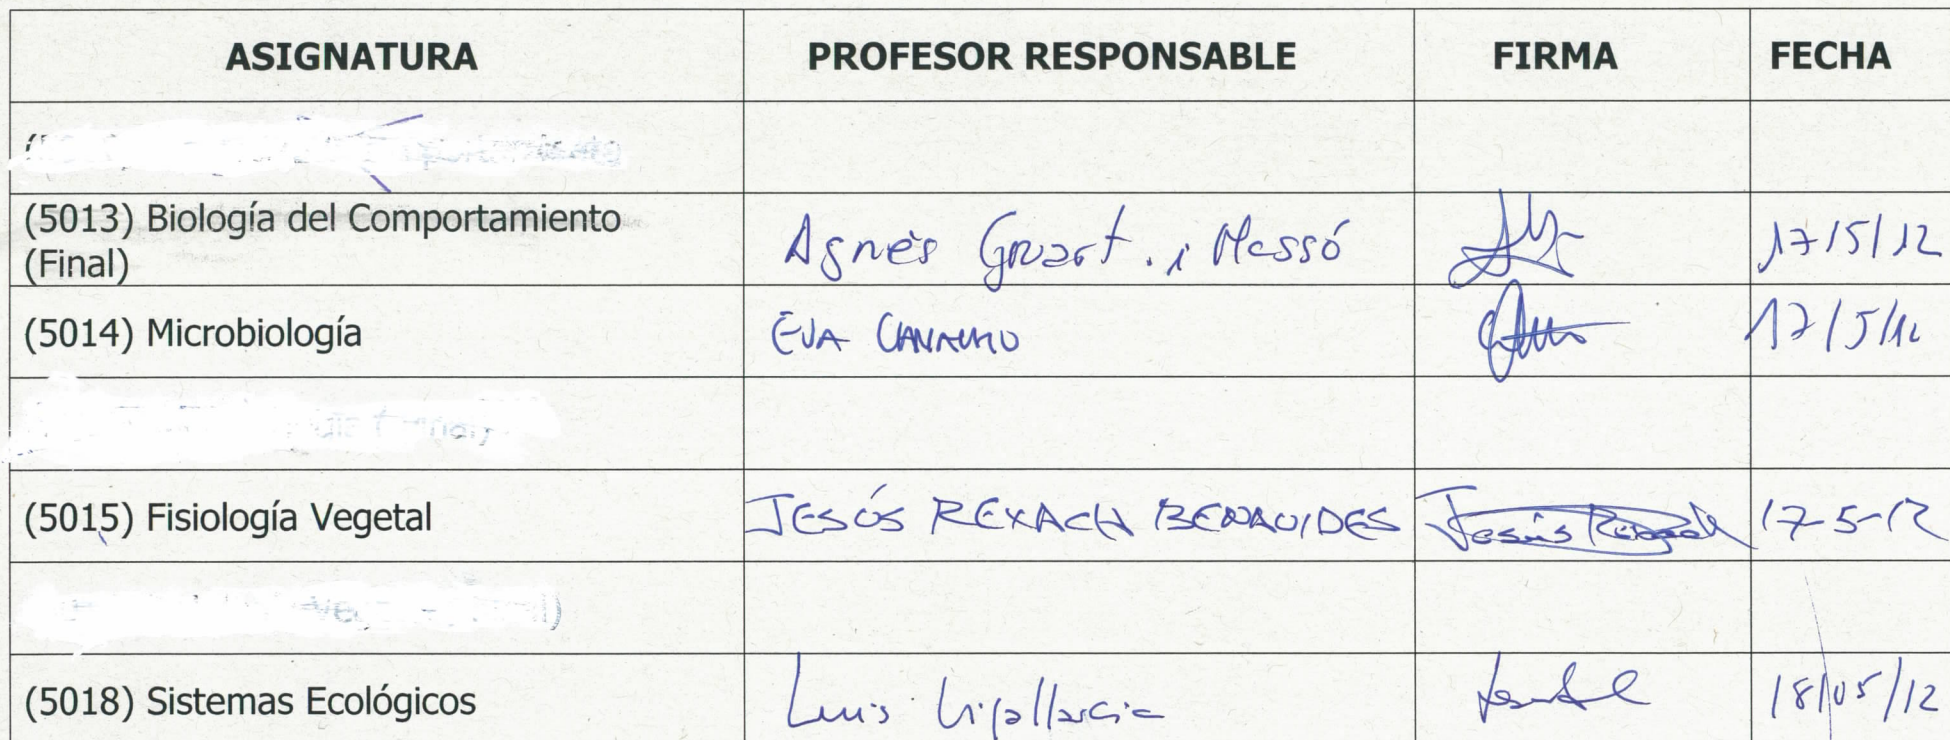 ASIGNATURA PROFESOR RESPONSABLE FIRMA FECHA
(5013) Biología del Comportamiento
(Final) Agnès Gruart i Massó 17/5/12
(5014) Microbiología EVA 17/5/12
(5015) Fisiología Vegetal JESÚS REXACH BENAVIDES Jesús Rexach 17-5-12
(5018) Sistemas Ecológicos Luis 18/05/12